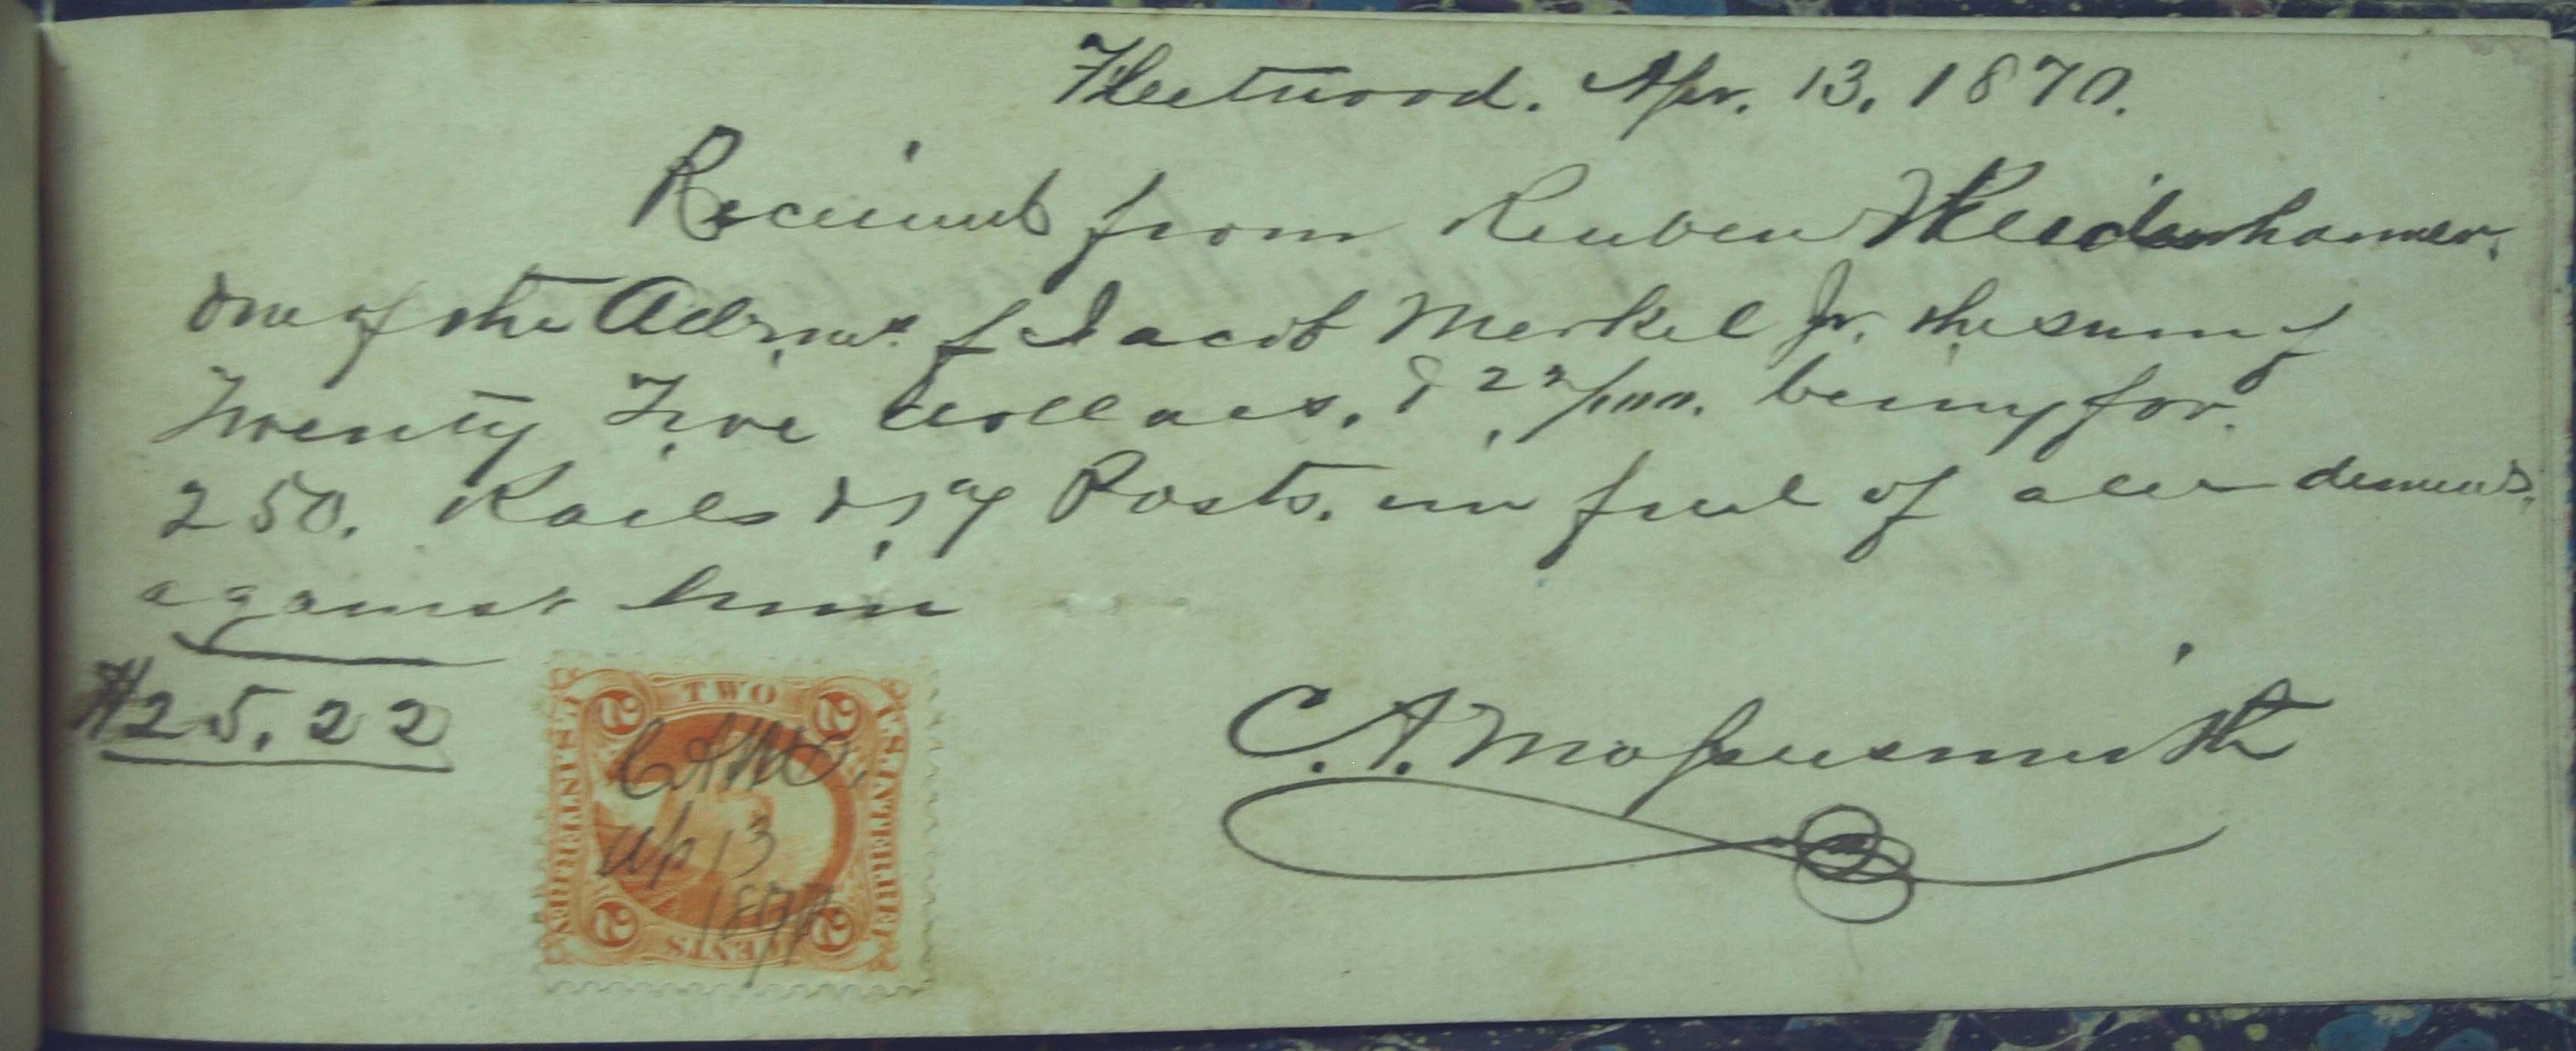 Fleetwood. Apr. 13, 1870.
Received from Reuben Weidenhammer.
One of the Adms. of Jacob Merkel Jr. the sum of
Twenty Five Dollars, & 22/100. being for.
250. Rails & Posts. in full of all demands.
against him
$25.22
C. A. Mossersmith
TWO
2 2
U.S. INTER. REV.
C.A.M.
Ap 13
1870
2 2
CENTS